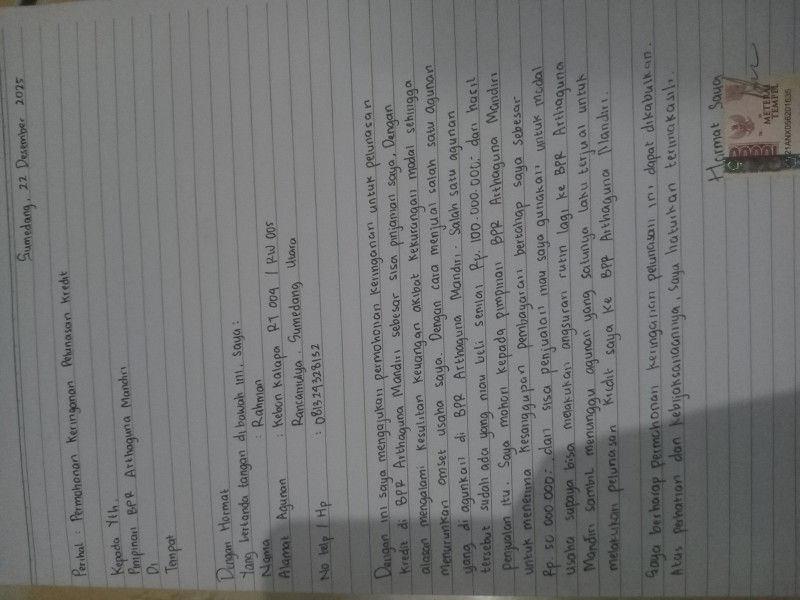 Sumedang, 22 Desember 2025
Perihal : Permohonan Keringanan Pelunasan Kredit
Kepada Yth.
Pimpinan BPR Arthaguna Mandiri
Di
Tempat
Dengan Hormat
Yang bertanda tangan dibawah ini, saya :
Nama : Rahman
Alamat Agunan : Kebon Kalapa RT 004 / RW 005
Rancamulya. Sumedang Utara
No telp / Hp : 081324328152
Dengan ini saya mengajukan permohonan keringanan untuk pelunasan
kredit di BPR Arthaguna Mandiri sebesar sisa pinjaman saya. Dengan
alasan mengalami kesulitan keuangan akibat kekurangan modal sehingga
menurunkan omset usaha saya. Dengan cara menjual salah satu agunan
yang di agunkan di BPR Arthaguna Mandiri. Salah satu agunan
tersebut sudah ada yang mau beli senilai Rp. 100.000.000;- dari hasil
penjualan itu. Saya mohon kepada pimpinan BPR Arthaguna Mandiri
untuk menerima kesanggupan pembayaran bertahap saya sebesar
Rp 50 000 000;- dari sisa penjualan mau saya gunakan untuk modal
usaha supaya bisa melakukan angsuran rutin lagi ke BPR Arthaguna
Mandiri sambil menunggu agunan yang satunya laku terjual untuk
melakukan pelunasan kredit saya ke BPR Arthaguna Mandiri.
Saya berharap permohonan keringanan pelunasan ini dapat dikabulkan.
Atas perhatian dan kebijaksanaannya, saya haturkan terimakasih.
Hormat Saya
METERAI
TEMPEL